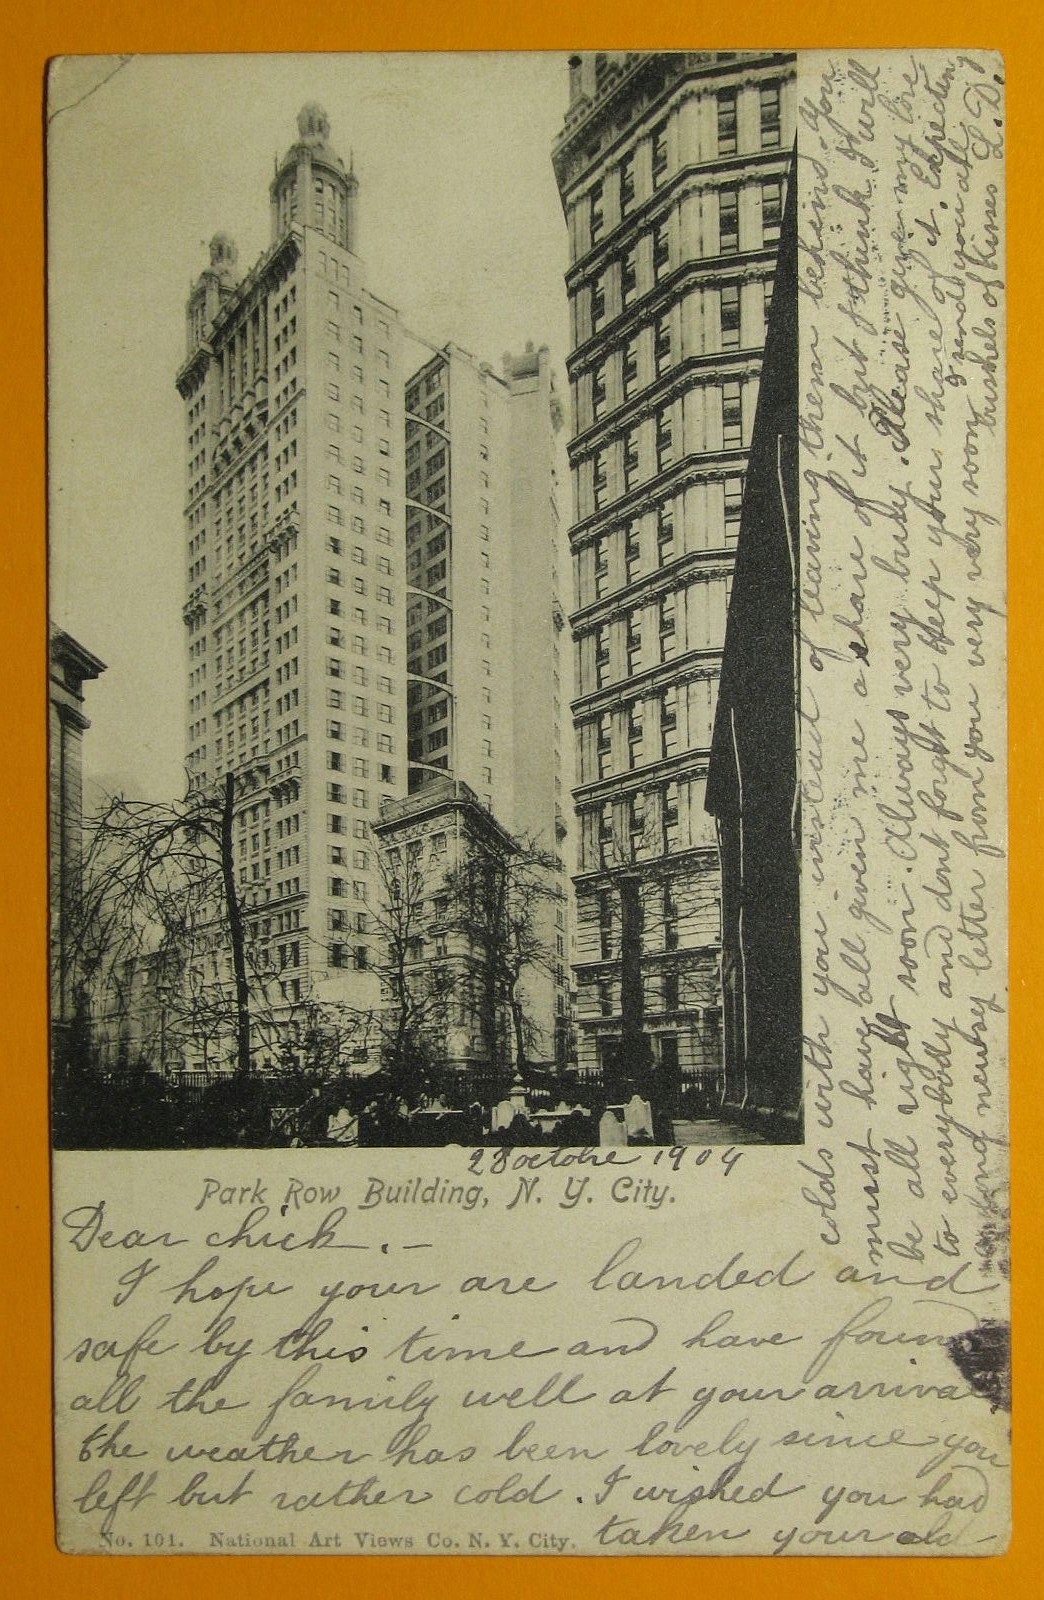 28 octobre 1904
Park Row Building, N. Y. City.
Dear chick. —
I hope your are landed and
safe by this time and have found
all the family well at your arrival
the weather has been lovely since you
left but rather cold. I wished you had
taken your old
No. 101. National Art Views Co. N. Y. City.
colds with you instead of leaving them behind. You
must have all given me a share of it but I think I will
be all right soon. Always very busy. Please give my love
to everybody and dont forget to keep your share of it. Expecting
long newsey letter from you very very soon I send you all
bushels of kisses L. D.